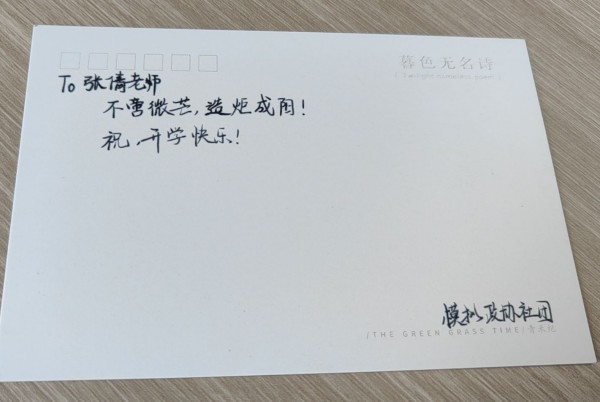 暮色无名诗
To 张倩老师
不啻微芒，造炬成阳！
祝，开学快乐！
模拟政协社团
/THE GREEN GRASS TIME/青禾纪